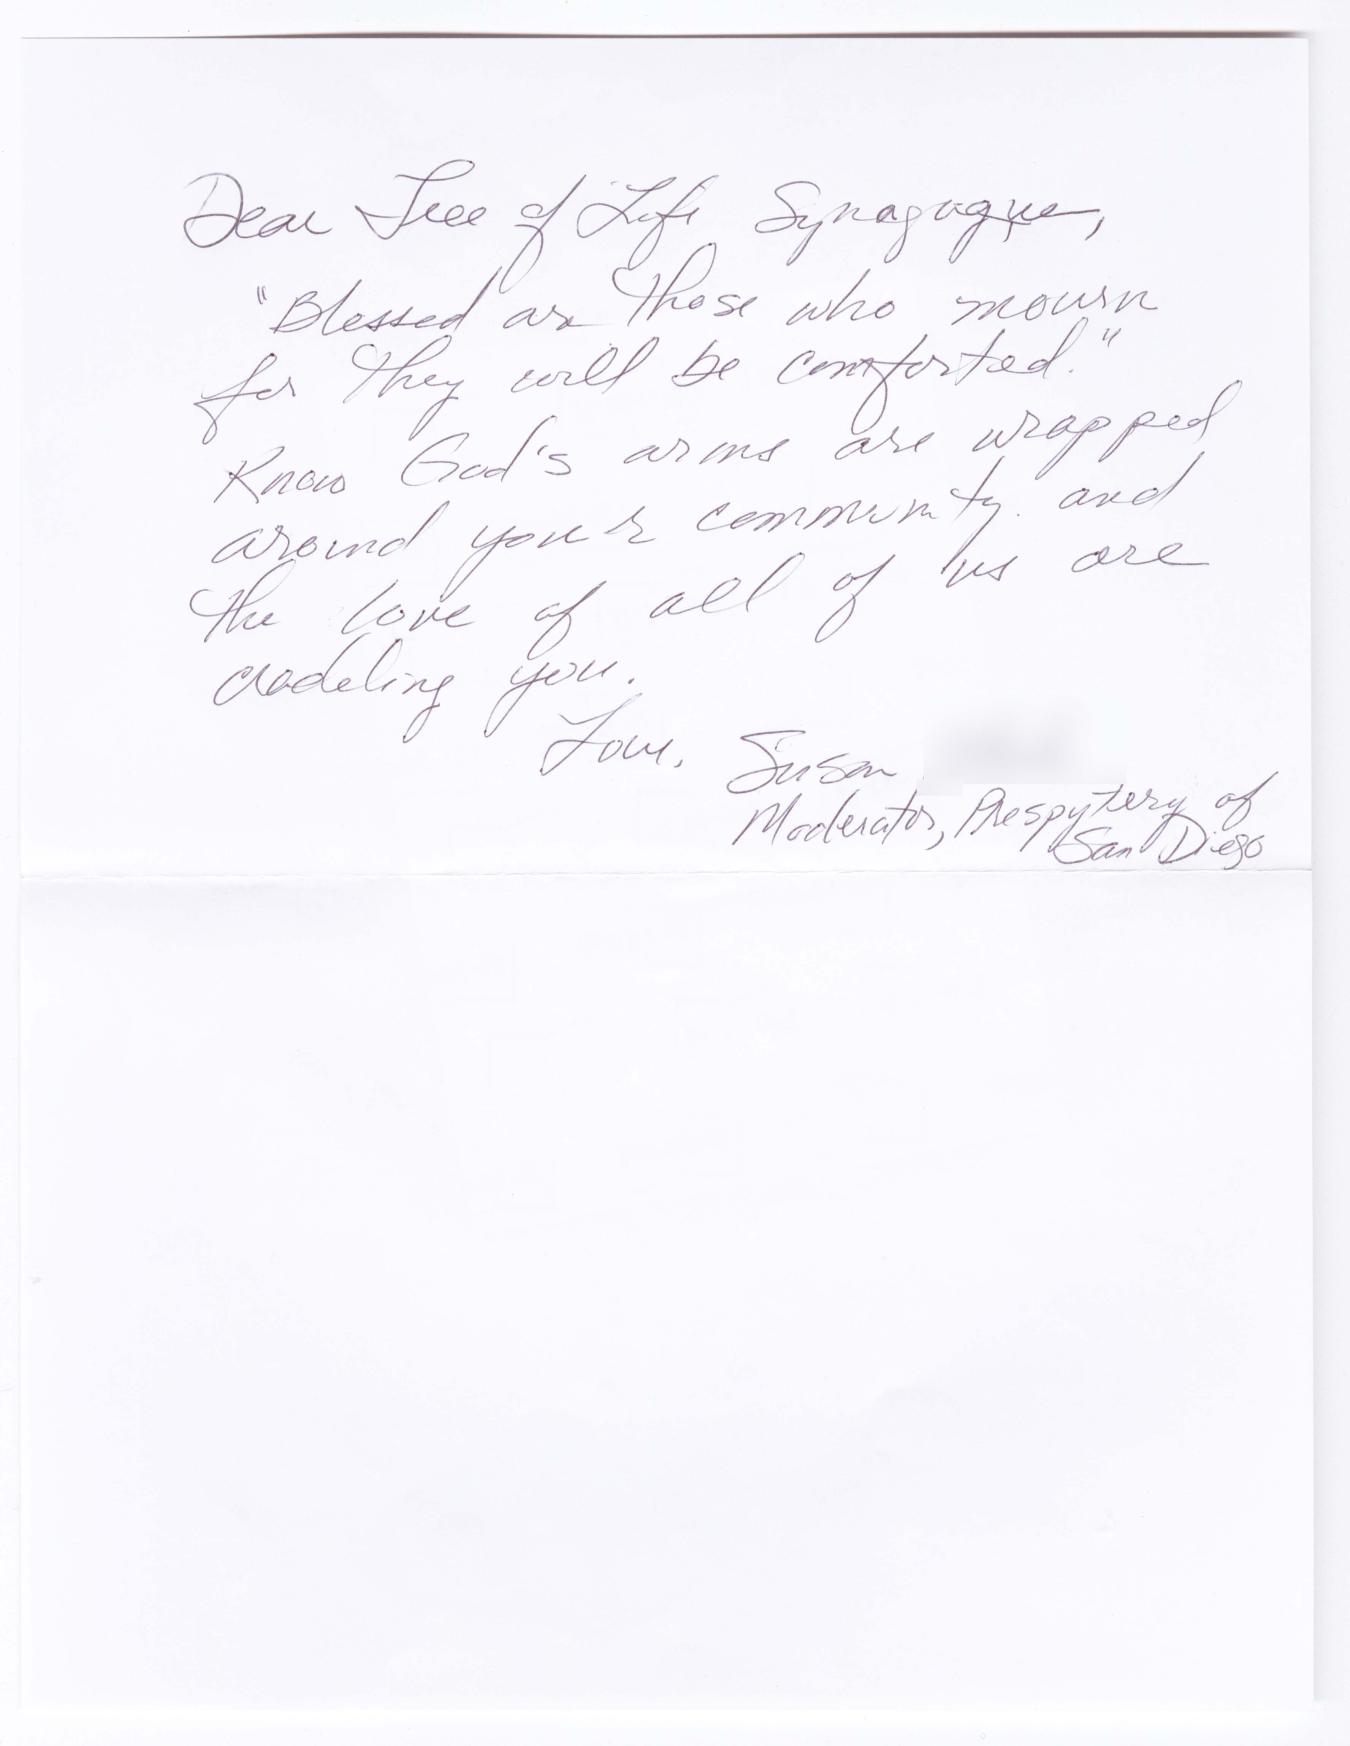 Dear Tree of Life Synagogue,
"Blessed are those who mourn
for they will be comforted."
Know God's arms are wrapped
around your community. and
the love of all of us are
cradeling you.
Love, Susan
Moderator, Prespytery of
San Diego